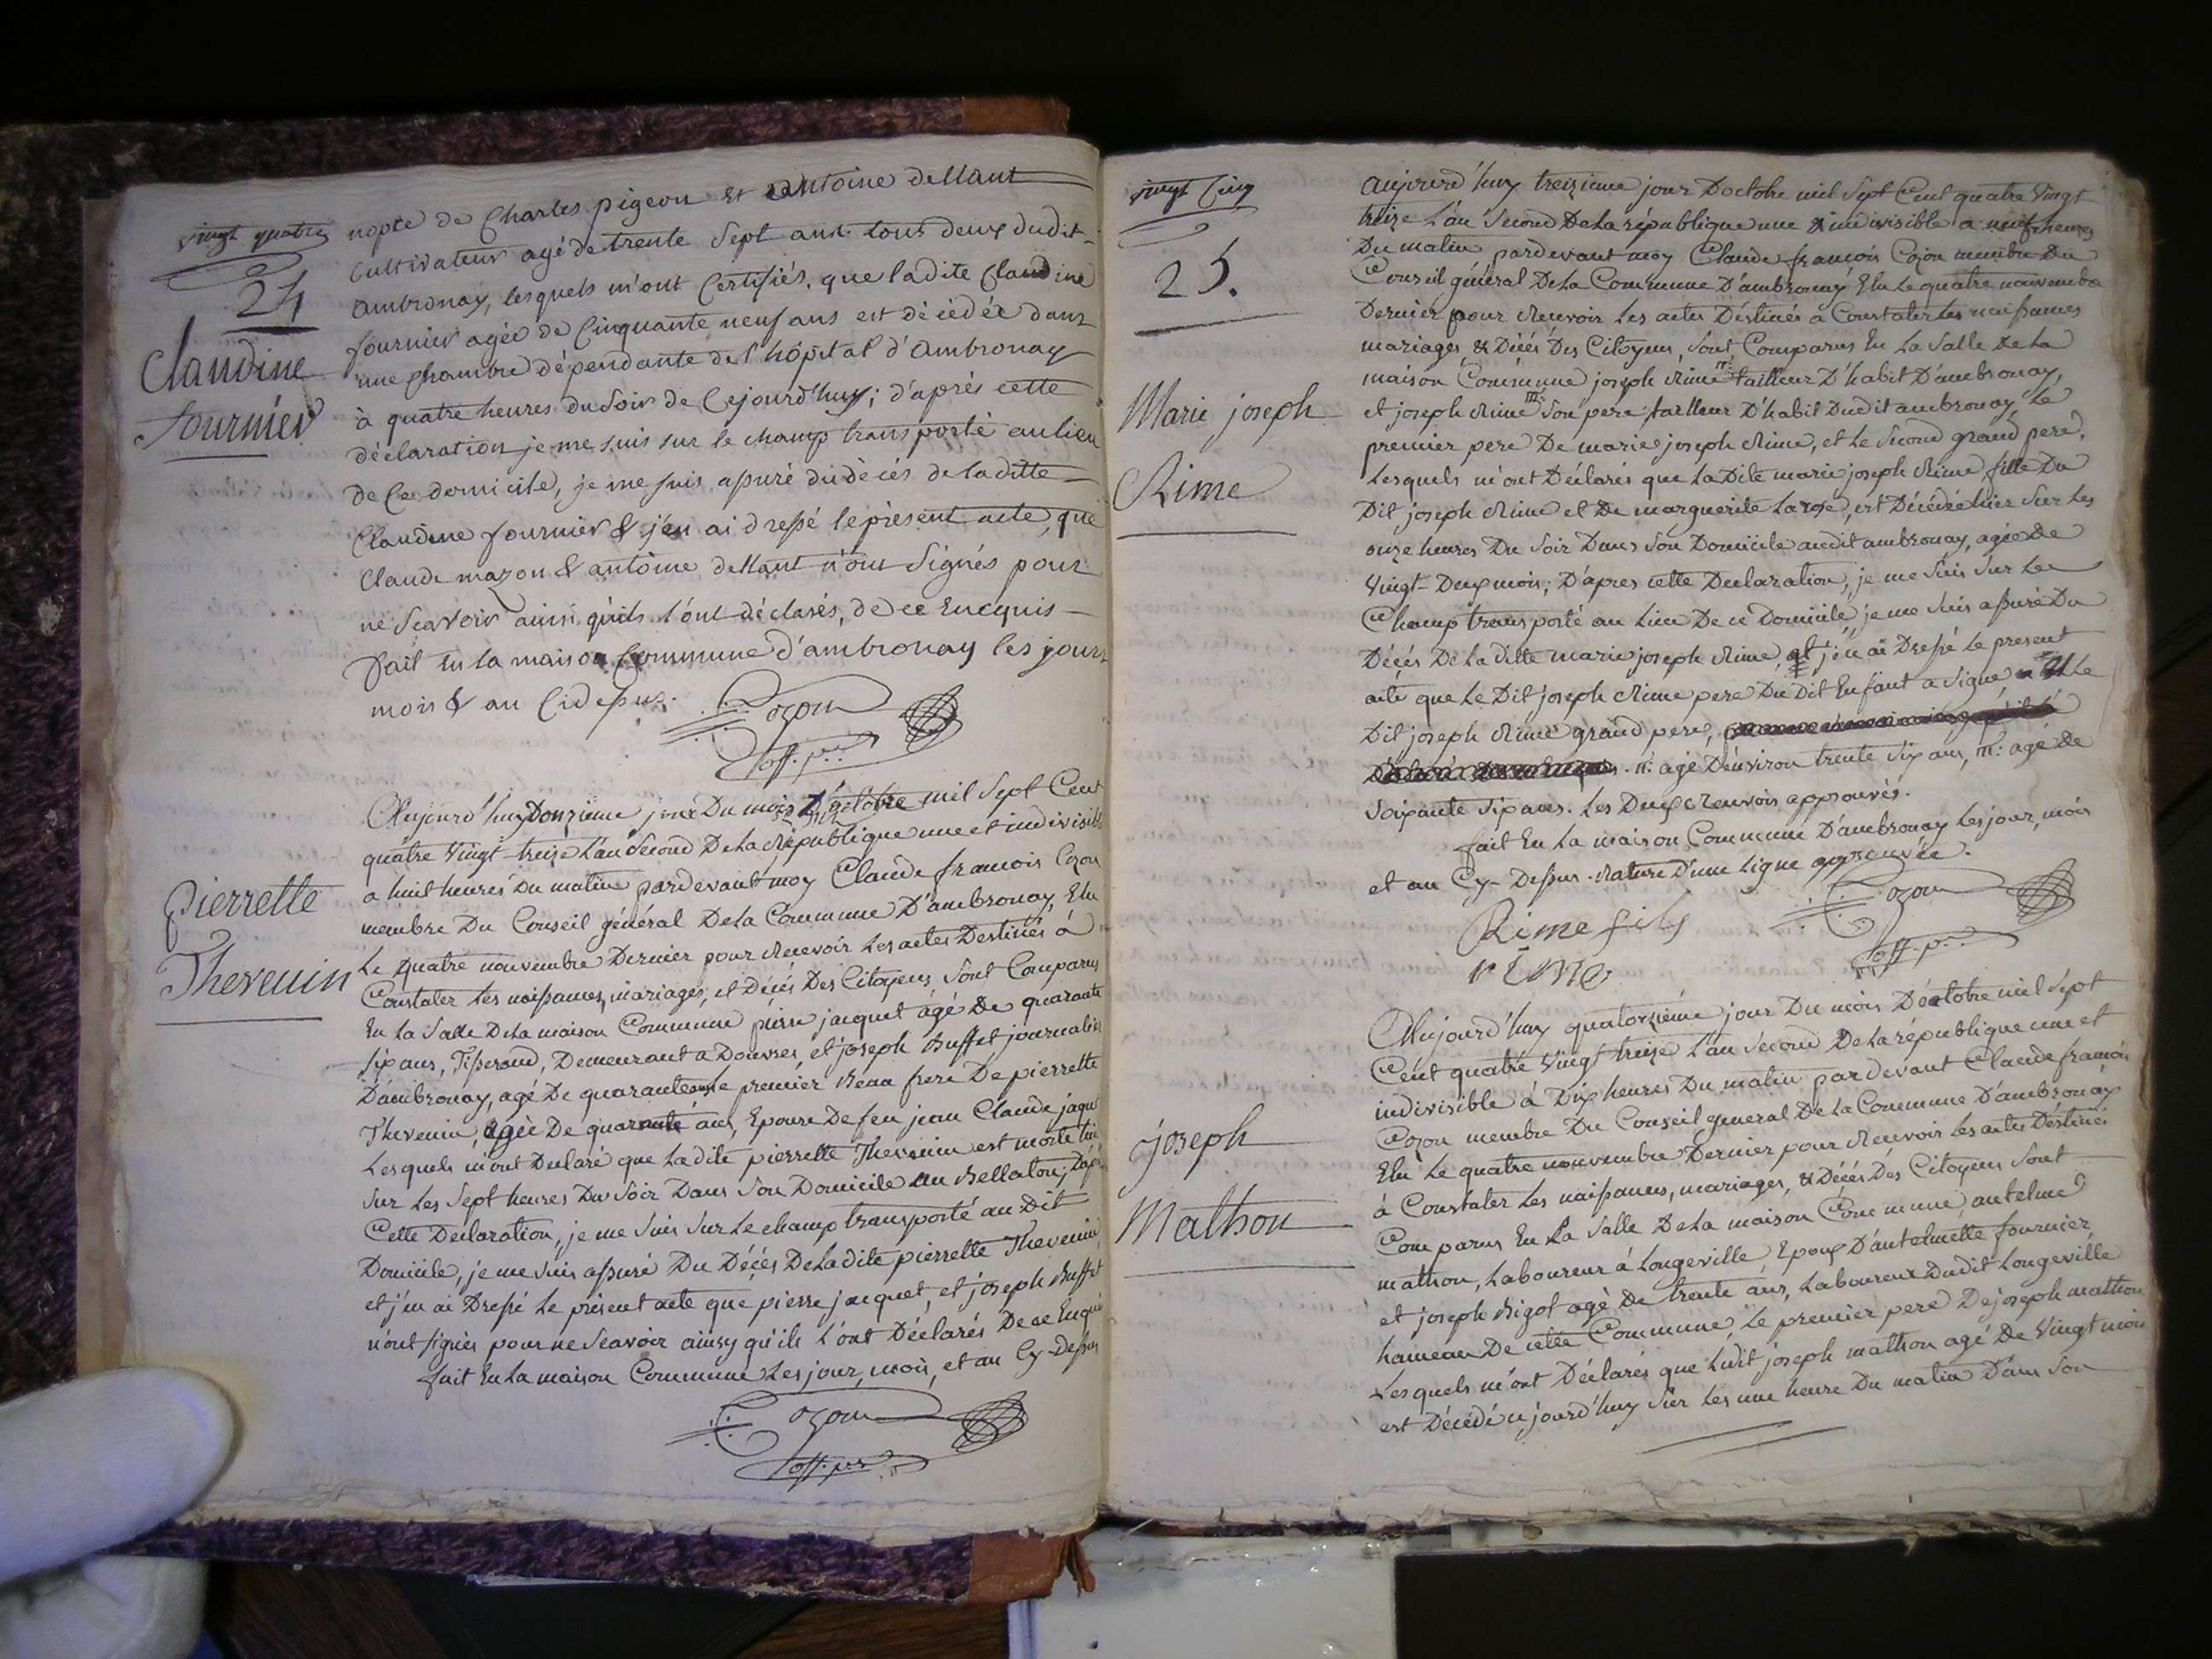 vingt quatre
24
Claudine
fournier
nopce de Charles pigeon et antoine dellant
cultivateur agé de trente sept ans tous deux dudit
ambronay, lesquels m'ont certifiés, que ladite Claudine
fournier agée de Cinquante neuf ans est décédée dans
une chambre dépendante de l'hôpital d'ambronay
à quatre heures du soir de Cejourd'huy; d'après cette
déclaration je me suis sur le champ transporté au lieu
de ce domicile, je me suis assuré du décés de laditte
Claudine fournier & j'en ai dressé le présent acte, que
Claude mazon & antoine dellant n'ont signés pour
ne scavoir ainsi qu'ils l'ont déclarés, de ce Enquis
fait en la maison Commune d'ambronay les jours
mois & an Cidessus.
Cozon
off. p.er
pierrette
Thevenin
Aujourd'huy Douzieme jour Du mois D'octobre mil Sept Cent
quatre Vingt treize L'an Second De La République une et indivisible
a huit heures Du matin pardevant moy Claude francois Cozon
membre Du Conseil général De La Commune D'ambronay Elu
Le quatre nouvembre Dernier pour Recevoir Les actes Destinés à
Constater Les naissances, mariages, et Décés Des Citoyens, Sont Comparus
En La Salle De La maison Commune pierre jacquet âgé De quarante
six ans, Tisserand, Demeurant a Douvres, et joseph Buffet journalier
D'ambronay, agé De quarante ans Le premier Beau frere De pierrette
Thevenin, agée De quarante ans, Epouse De feu jean Claude jaque
Lesquels m'ont Declaré que Ladite pierrette Thevenin est morte hier
sur Les Sept heures Du Soir Dans Son Domicile au Bellaton; D'apès
Cette Déclaration, je me Suis Sur Le champ transporté au Dit
Domicile, je me Suis assuré Du Décés De Ladite pierrette Thevenin
et j'en ai Dressé Le présent acte que pierre jacquet, et joseph Buffet
n'ont signés pour ne Scavoir ainsy qu'ils L'ont Déclarés De ce Enquis
fait En La maison Commune Les jour, mois, et an Cy-Dessus
Cozon
off. p.er
vingt Cinq
25.
Marie joseph
Rime
aujourd'huy treizieme jour D'octobre mil Sept Cent quatre Vingt
treize L'an Second De La république une & indivisible a neuf heures
Du matin, pardevant moy Claude françois Cozon membre Du
Conseil général De La Commune D'ambronay Elu Le quatre nouvembre
Dernier pour Recevoir Les actes Déstinés a Constater Les naissances
mariages, & Décés Des Citoyens, Sont Comparus En La Salle De La
maison Commune joseph Rime tailleur D'habit D'ambronay,
et joseph Rime Son pere tailleur D'habit Dudit ambronay Le
premier pere De marie joseph Rime, et Le Second grand pere,
Lesquels m'ont Déclarés que La Dite marie joseph Rime fille Du
Dit joseph Rime et De marguerite Larose, est Décédée hier Sur Les
onze heures Du Soir Dans Son Domicile audit ambronay, agée De
Vingt-Deux mois; D'apres cette Declaration, je me Suis Sur Le
Champ transporté au Lieu De ce Domicile, je me Suis assuré Du
Décés De La ditte marie joseph Rime, et j'en ai Dressé Le present
acte que Le Dit joseph Rime pere Du Dit Enfant a Signé et Le
Dit joseph Rime grand pere,
agé D'environ trente Six ans, agé De
Soixante Six ans. Les Deux Renvois approuvés.
fait En La maison Commune D'ambronay Les jour, mois
et an Cy-Dessus. Rature D'une Ligne approuvée.
Rime fils
rime
Cozon
off. p.er
joseph
Mathon
Aujourd'huy quatorzieme jour Du mois D'octobre mil Sept
Cent quatre Vingt treize L'an Second De La république une et
indivisible à Dix heures Du matin pardevant Claude françois
Cozon membre Du Conseil general De La Commune D'ambronay
Elu Le quatre nouvembre Dernier pour Recevoir Les actes Déstinés
à Constater Les naissances, mariages, & Décés Des Citoyens Sont
Comparus En La Salle De La maison Commune, antelme
mathon, Laboureur à Longeville, Epoux D'antelmette fournier
et joseph Bigot agé De trente ans, Laboureur Dudit Longeville
hameau De cette Commune, Le premier pere De joseph mathon
Lesquels m'ont Déclarés que Ledit joseph mathon agé De Vingt mois
est Décédé cejourd'huy Sur Les une heure Du matin Dans Son